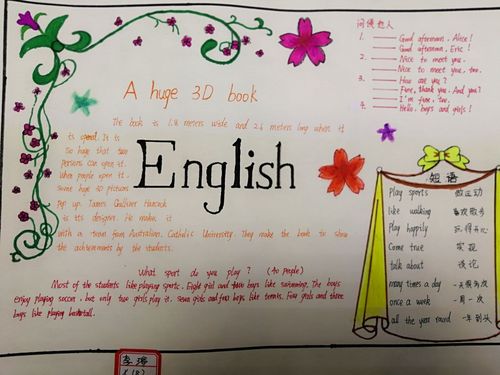 A huge 3D book
The book is 1.8 meters wide and 2.6 meters long when it
is opend. It is
so huge that two
persons can open it.
When people open it.
Some huge 3D pictures
Pop up. James Gulliver Hancock
is its designer. He makes it
with a team from Australian, Catholic University. They make the book to show
the achievements by the students.
English
What sport do you play ? (40 people)
Most of the students like playing sports. Eight girl and four boys like swimming. The boys
enjoy playing soccer, but only two girls play it. Seven girls and four boys like tennis. Four girls and three
boys like playing basketball.
问候他人
1. Good afternoon. Alice!
Good afternoon, Eric!
2. Nice to meet you.
Nice to meet you, too.
3. How are you?
Fine, thank you. And you?
I'm fine, too.
4. Hello, boys and girls!
短语
Play sports 做运动
like walking 喜欢散步
Play happily 玩得开心
Come true 实现
talk about 谈论
many times a day 一天很多次
once a week 一周一次
all the year round 一年到头